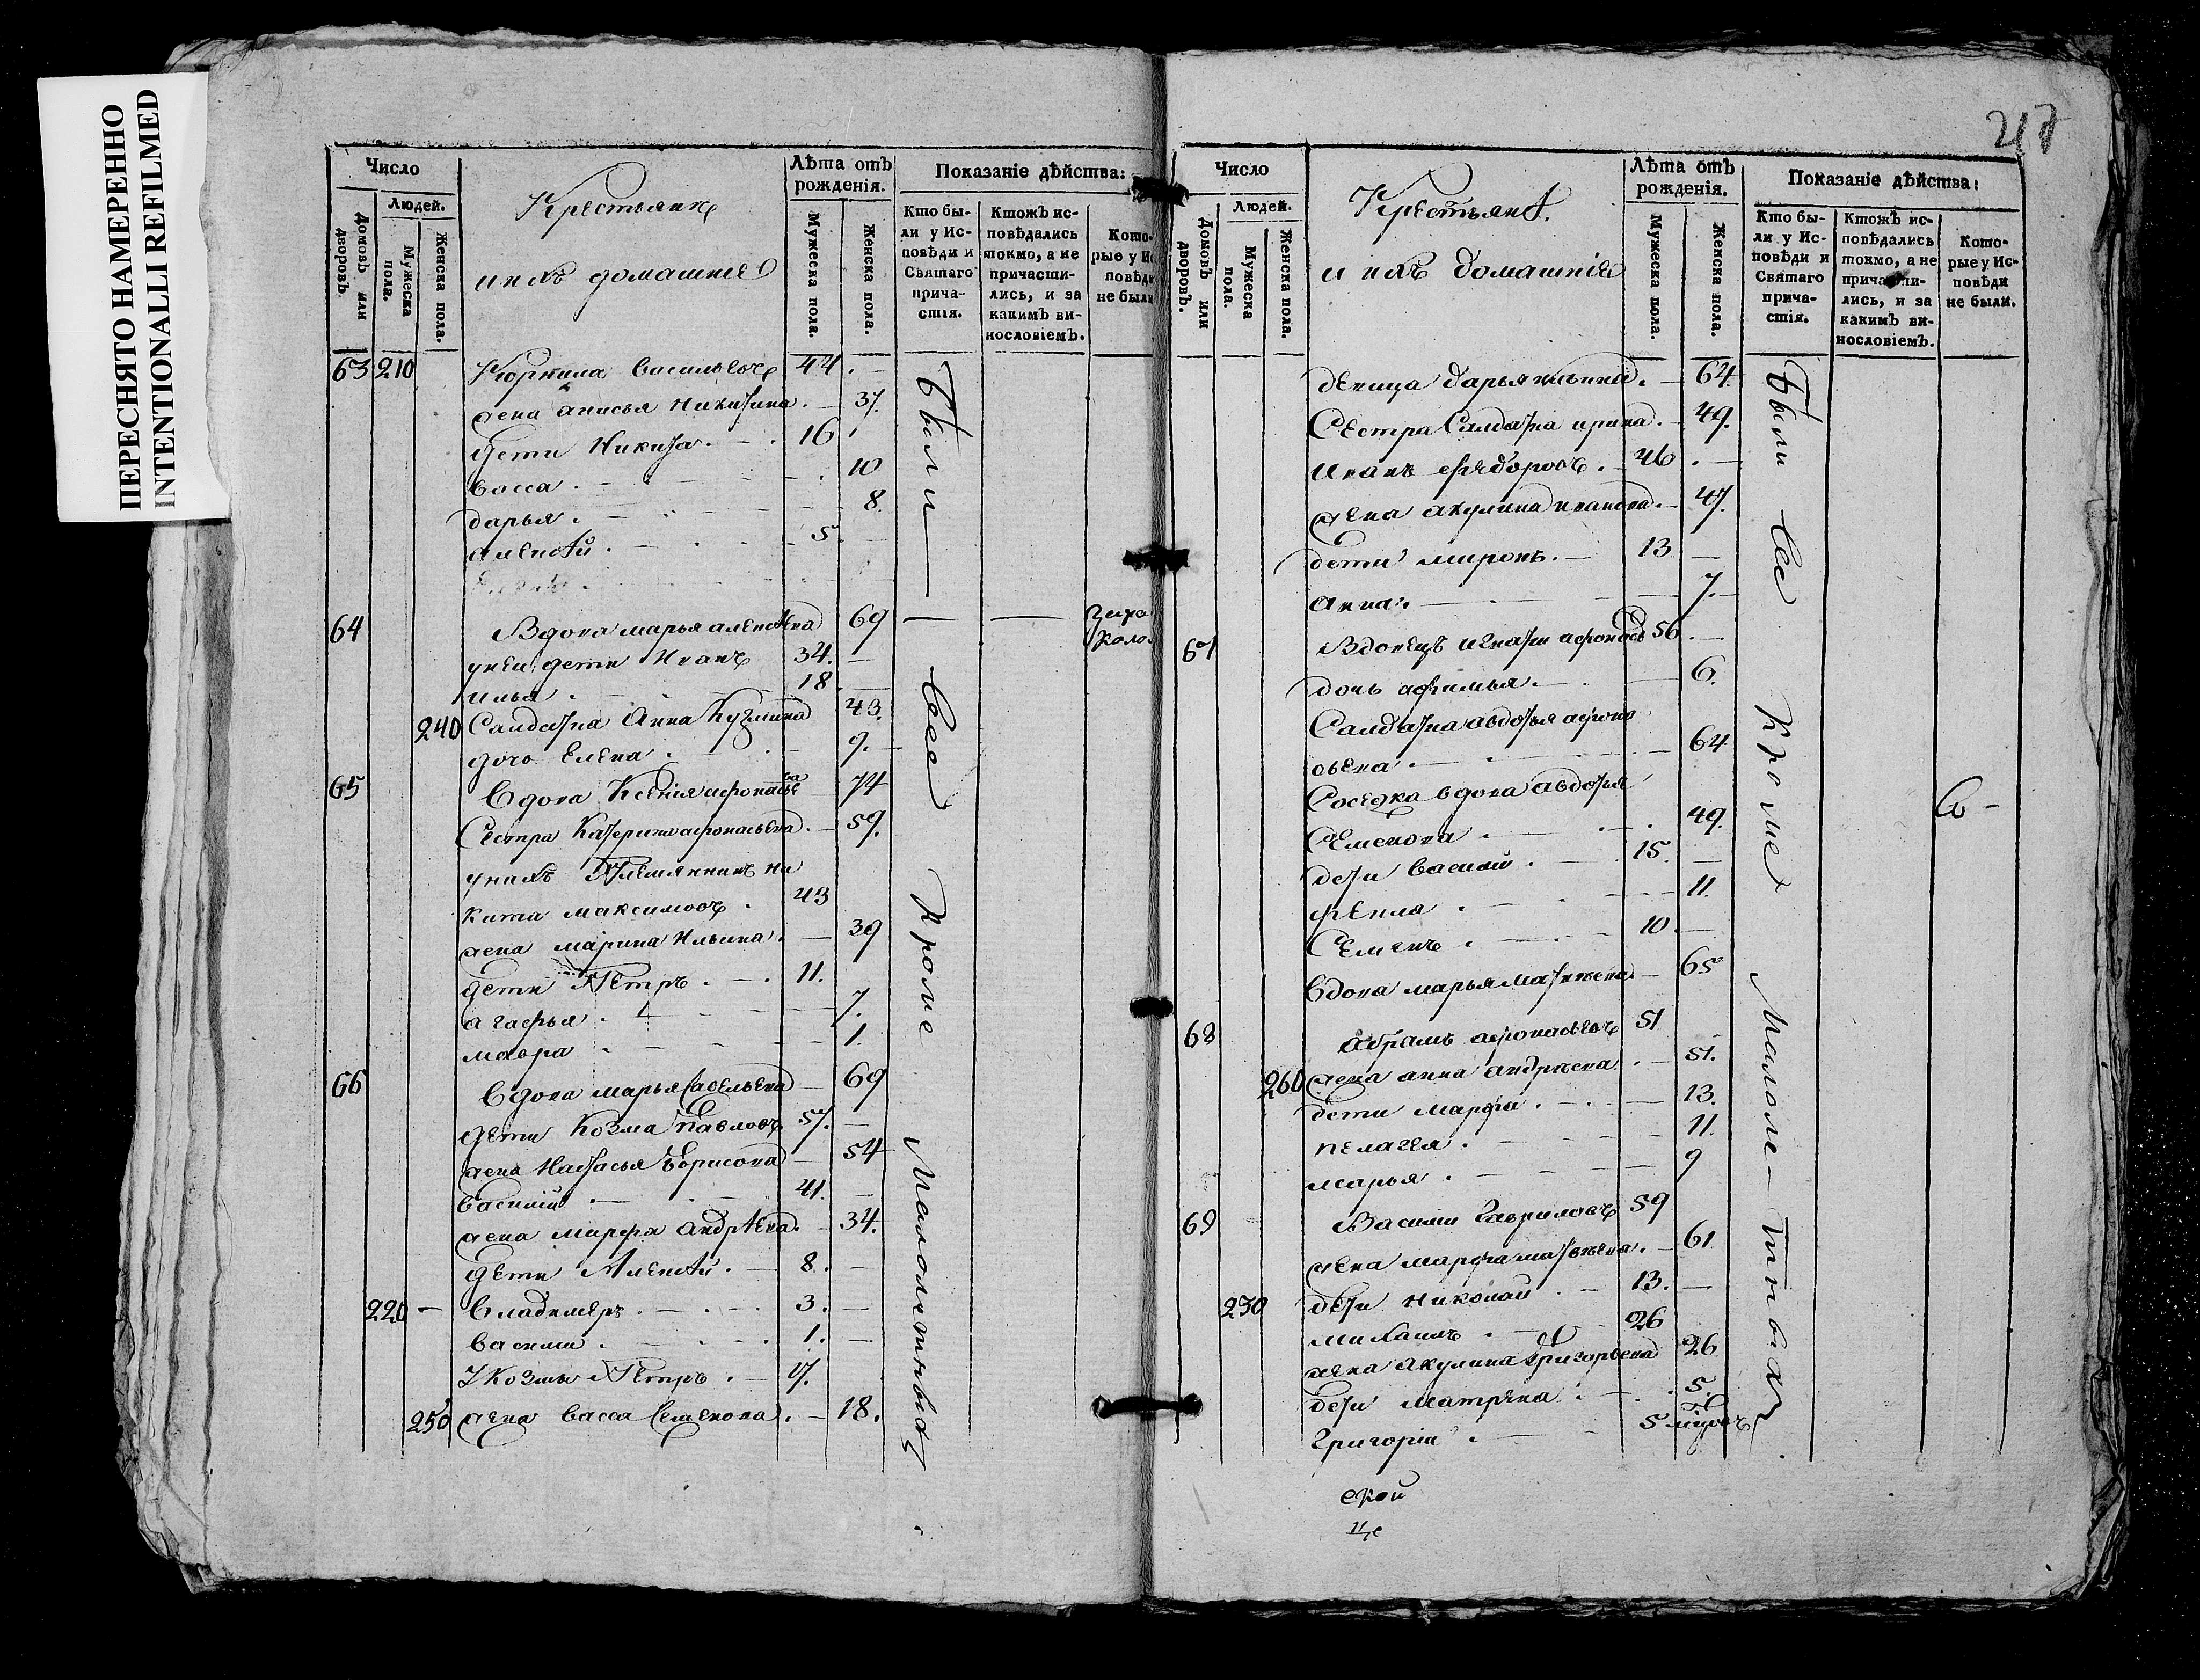 ПЕРЕСНЯТО НАМЕРЕННО
INTENTIONALLI REFILMED
Число
Людей.
Домовъ или дворовъ.
Мужеска пола.
Женска пола.
Крестьяне
и ихъ домашніе
Лѣта отъ рожденія.
Мужеска пола.
Женска пола.
Показаніе дѣйства:
Кто бы-
ли у Ис-
повѣди и
Святаго
прича-
стія.
Ктожъ ис-
повѣдались
токмо, а не
причасти-
лись, и за
какимъ ви-
нословіемъ.
Кото-
рые у Ис
повѣди
не были
63 210 Корнила Васильевъ 44.
жена анисья Никитина. 37.
дети Никита. 16
васса. 10
дарья. 8.
алексѣй. 5
64 Вдова марья алексѣева 69
унеи дети Иванъ 34.
илья. 18
240 Салдатка Анна Кузмина 43.
дочь Елена. 9.
65 Вдова Ксенія афонасьева 74
Сестра Катерина афонасьева. 59.
унихъ Племянникъ Ни
кита максимовъ. 43
жена марина Ильина. 39
дети Петръ. 11.
агафья. 7.
мавра 1.
66 Вдова марья Савельева 69
дети Козма Павловъ 57.
жена Настасья Борисова 54
Василій 41.
жена марфа андрѣева. 34.
дети Алексѣй. 8.
220 Владимеръ. 3.
василии. 1.
У Козмы Петръ. 17.
250 жена васса Семенова. 18.
Были все Кроме Малолетныхъ.
217
Число
Людей.
Домовъ или дворовъ.
Мужеска пола.
Женска пола.
Крестьянѣ.
и ихъ домашнія
Лѣта отъ рожденія.
Мужеска пола.
Женска пола.
Показаніе дѣйства:
Кто бы-
ли у Ис-
повѣди и
Святаго
прича-
стія.
Ктожъ ис-
повѣдались
токмо, а не
причасти-
лись, и за
какимъ ви-
нословіемъ.
Кото-
рые у Ис-
повѣди
не были.
девица дарья ильина. 64
Сестра Салдатка ирина. 49.
Иванъ федоровъ. 46
жена акулина иванова. 47.
дети миронъ. 13
анна. 7.
67 Вдовецъ игнати афонасье 56
дочь афимья. 6.
Салдатка авдотья афона
сьева. 64
Соседка вдова авдотья
Семенова. 49.
дети василй. 15.
фекла. 11.
Семенъ. 10.
Вдова марья матвеева. 65
68 абрамъ афонасьевъ 51
260 жена анна андреева. 51.
дети марфа. 13.
пелагея. 11.
марья. 9
69 Васили Гавриловъ 59
жена марфа матвеева. 61
230 дети николаи. 13.
михаилъ. 26
жена акулина григорьева 26
дети матрена. 5.
григорій. 5 мцовъ
Были все Кроме Малоле-тныхъ.
ской